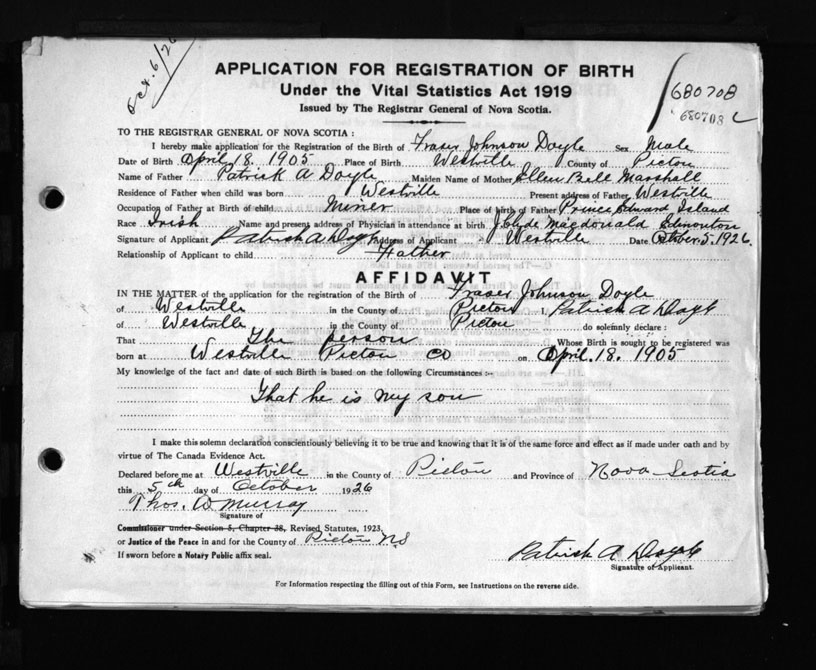 Oct. 6/26
APPLICATION FOR REGISTRATION OF BIRTH
Under the Vital Statistics Act 1919
Issued by The Registrar General of Nova Scotia.
680708
680708
TO THE REGISTRAR GENERAL OF NOVA SCOTIA :
I hereby make application for the Registration of the Birth of Fraser Johnson Doyle Sex Male
Date of Birth April 18. 1905 Place of Birth Westville County of Pictou
Name of Father Patrick A Doyle Maiden Name of Mother Ellen Bell Marshall
Residence of Father when child was born Westville Present address of Father Westville
Occupation of Father at Birth of child Miner Place of birth of Father Prince Edward Island
Race Irish Name and present address of Physician in attendance at birth J Clyde Macdonald Edmonton
Signature of Applicant Patrick A Doyle Address of Applicant Westville Date October. 5. 1926.
Relationship of Applicant to child Father
AFFIDAVIT
IN THE MATTER of the application for the registration of the Birth of Fraser Johnson Doyle
of Westville in the County of Pictou I, Patrick A Doyle
of Westville in the County of Pictou do solemnly declare :
That The person Whose Birth is sought to be registered was
born at Westville Pictou Co on April. 18. 1905
My knowledge of the fact and date of such Birth is based on the following Circumstances :-
That he is my son
I make this solemn declaration conscientiously believing it to be true and knowing that it is of the same force and effect as if made under oath and by
virtue of The Canada Evidence Act.
Declared before me at Westville in the County of Pictou and Province of Nova Scotia
this 5th day of October 1926
Thos. W Murray
Signature of
Commissioner under Section 5, Chapter 38, Revised Statutes, 1923,
or Justice of the Peace in and for the County of Pictou N.S
If sworn before a Notary Public affix seal.
Patrick A Doyle
Signature of Applicant.
For Information respecting the filling out of this Form, see Instructions on the reverse side.